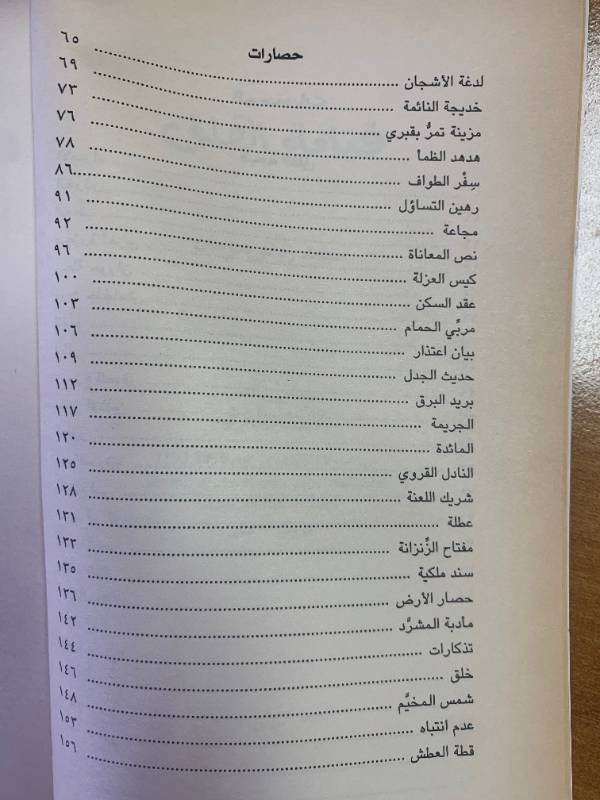 حصارات
لدغة الأشجان ........ ٦٥
خديجة النائمة ........ ٦٩
مزينة تمرُّ بقبري ........ ٧٣
هدهد الظمأ ........ ٧٦
سِفْر الطواف ........ ٧٨
رهين التساؤل ........ ٨٦
مجاعة ........ ٩١
نص المعاناة ........ ٩٢
كيس العزلة ........ ٩٦
عقد السكن ........ ١٠٠
مربِّي الحمام ........ ١٠٣
بيان اعتذار ........ ١٠٦
حديث الجدل ........ ١٠٩
بريد البرق ........ ١١٢
الجريمة ........ ١١٧
المائدة ........ ١٢٠
النادل القروي ........ ١٢٥
شريك اللعنة ........ ١٢٨
عطلة ........ ١٣١
مفتاح الزِّنزانة ........ ١٣٣
سند ملكية ........ ١٣٥
حصار الأرض ........ ١٣٦
مأدبة المشرَّد ........ ١٤٢
تذكارات ........ ١٤٤
خلق ........ ١٤٦
شمس المخيَّم ........ ١٤٨
عدم انتباه ........ ١٥٣
قطة العطش ........ ١٥٦